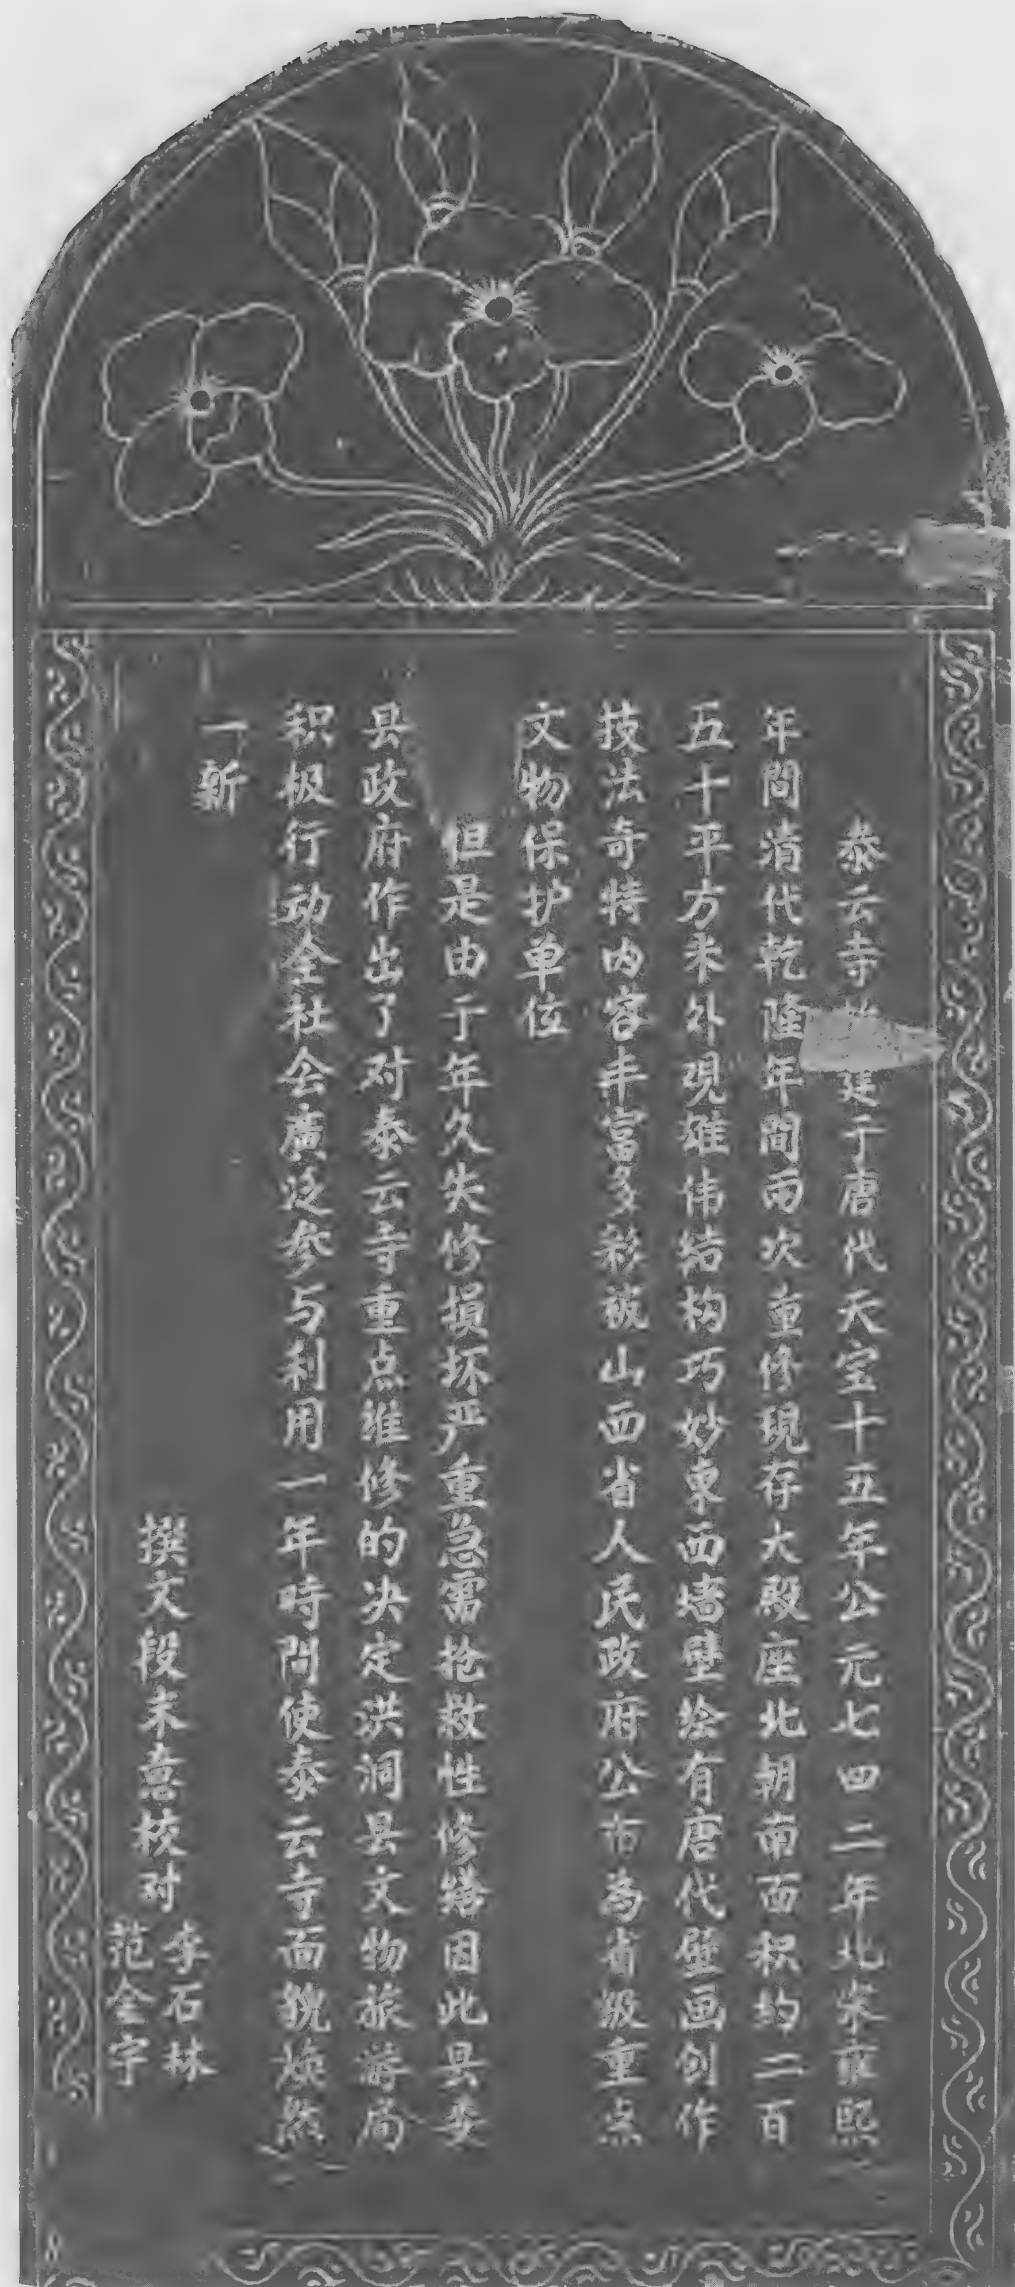 泰云寺始建于唐代天宝十五年公元七四二年北宋雍熙
年間清代乾隆年間两次重修現存大殿座北朝南面积约二百
五十平方米外观雄伟结构巧妙東西墙壁绘有唐代壁画创作
技法奇特内容丰富多彩被山西省人民政府公布为省级重点
文物保护单位
但是由于年久失修損坏严重急需抢救性修缮因此县委
县政府作出了对泰云寺重点维修的决定洪洞县文物旅游局
积极行动全社会廣泛参与利用一年時間使泰云寺面貌焕然
一新
撰文段末意校对
李石林
范全字